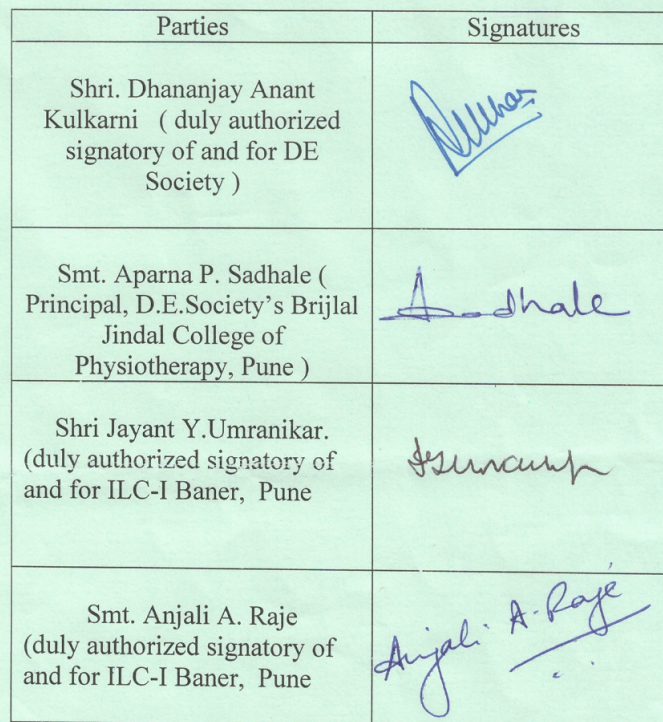 Parties
Signatures
Shri. Dhananjay Anant
Kulkarni ( duly authorized
signatory of and for DE
Society )
Smt. Aparna P. Sadhale (
Principal, D.E.Society's Brijlal
Jindal College of
Physiotherapy, Pune )
Sadhale
Shri Jayant Y.Umranikar.
(duly authorized signatory of
and for ILC-I Baner, Pune
Smt. Anjali A. Raje
(duly authorized signatory of
and for ILC-I Baner, Pune
Anjali A. Raje